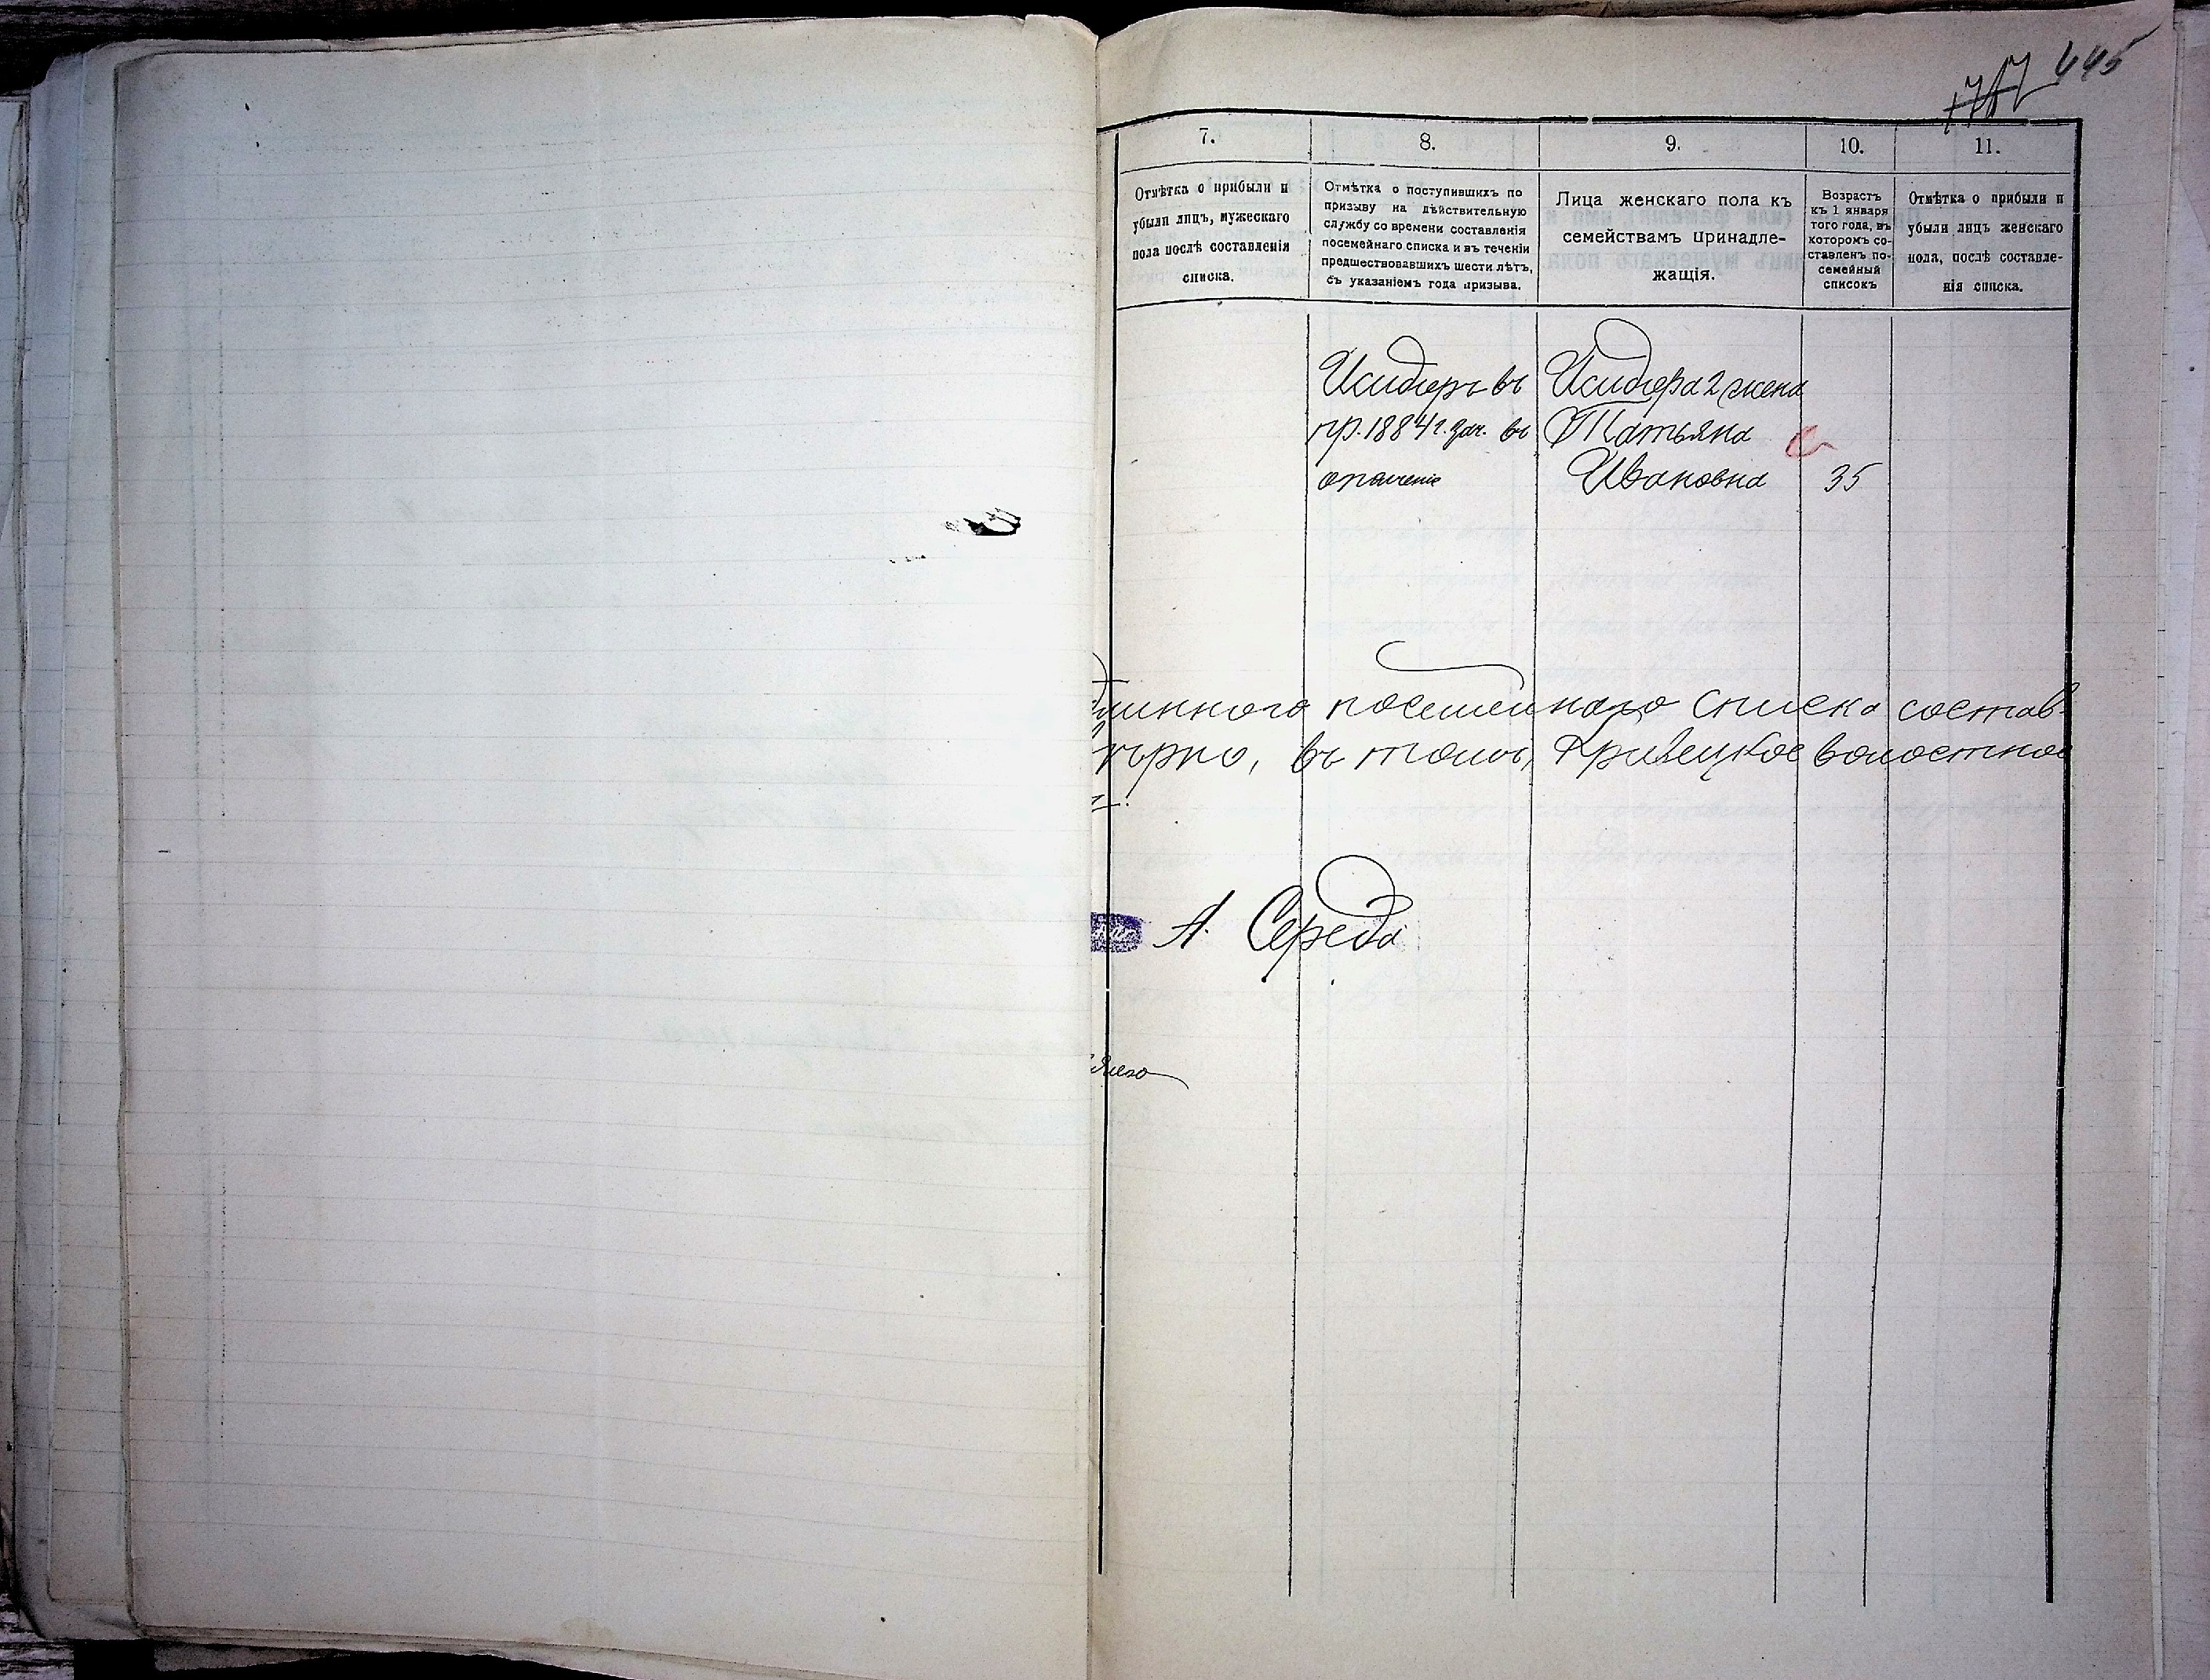 445
7.
8.
9.
10.
11.
Отмѣтка о прибыли и
убыли лицъ, мужескаго
пола послѣ составленія
списка.
Отмѣтка о поступившихъ по
призыву на дѣйствительную
службу со времени составленія
посемейнаго списка и въ теченіи
предшествовавшихъ шести лѣтъ,
съ указаніемъ года призыва.
Лица женскаго пола къ
семействамъ принадле-
жащія.
Возрастъ
къ 1 января
того года, въ
которомъ со-
ставленъ по-
семейный
списокъ
Отмѣтка о прибыли и
убыли лицъ женскаго
пола, послѣ составле-
нія списка.
Исидоръ въ
пр. 1884 г. зач. въ
ополченіе
Исидора 2 жена
Татьяна
Ивановна
35
линнаго посемейнаго списка состав-
вѣрно, въ томъ, волостное
А. Середа